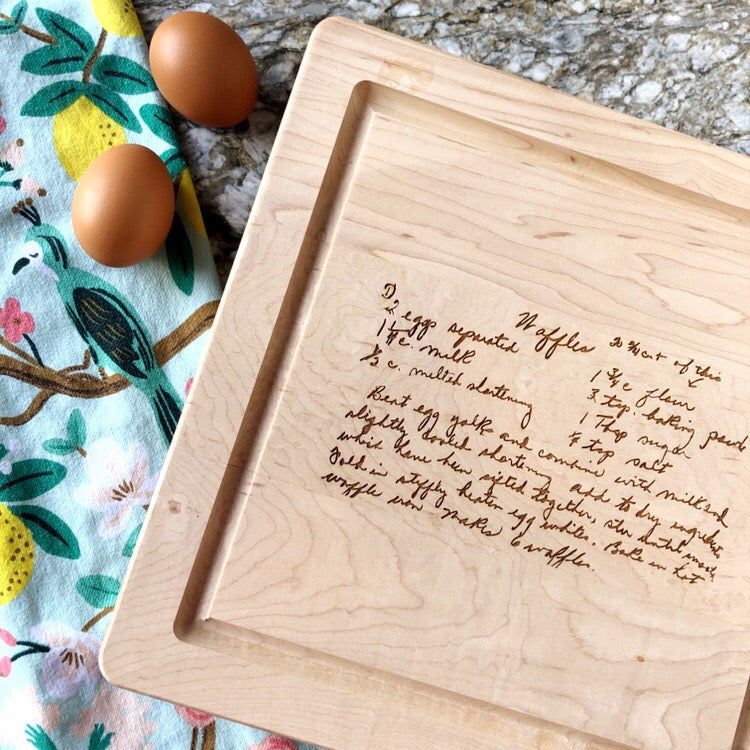 Waffles
2 eggs separated
1 1/4 c. milk
1/2 c. melted shortening
of this
1 3/4 c flour
3 tsp. baking powd
1 Tbsp sugar
1/2 tsp salt
Beat egg yolks and combine with milk and
slightly cooled shortening add to dry ingredients
which have been sifted together, stir until smooth
Fold in stiffly beaten egg whites. Bake in hot
waffle iron Makes 6 waffles.